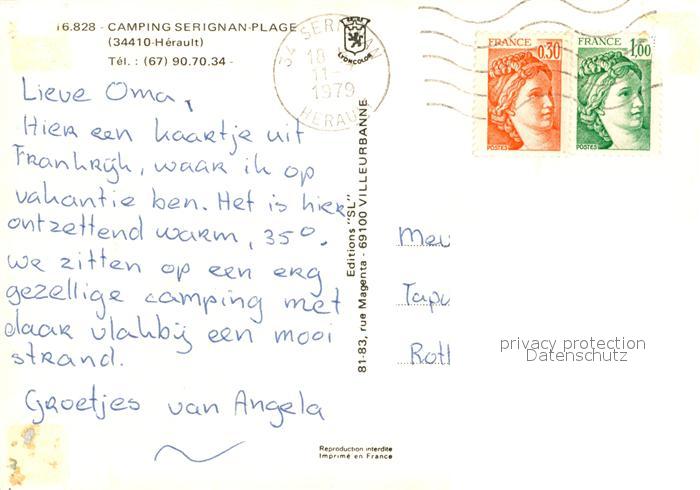 16.828 - CAMPING SERIGNAN-PLAGE
(34410-Hérault)
Tél. : (67) 90.70.34 -
Lieve Oma,
Hier een kaartje uit
Frankrijk, waar ik op
vakantie ben. Het is hier
ontzettend warm, 35°.
we zitten op een erg
gezellige camping met
daar vlakbij een mooi
strand.
Groetjes van Angela
34 SERIGNAN
18
11 -
1979
HERAULT
LYONCOLOR
FRANCE 0,30
POSTES
FRANCE 1,00
POSTES
Editions "SL"
81-83, rue Magenta - 69100 VILLEURBANNE
Mev
Tapu
Rott
privacy protection
Datenschutz
Reproduction interdite
Imprimé en France